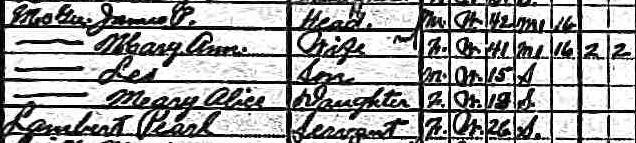 McGee James P. Head. M. W. 42 M1 16
—— Mary Ann. Wife F. W. 41 M1 16 2 2
—— Les Son M. W. 15 S.
—— Meary Alice Daughter F. W. 13 S.
Lambert Pearl Servant F. W. 26 S.